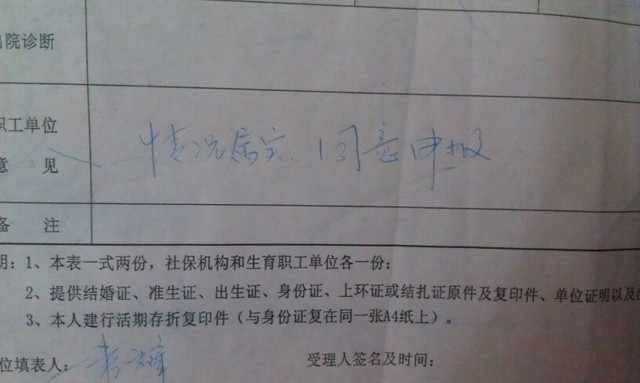 出院诊断
职工单位
意 见
情况属实、同意申报
备 注
明：1、本表一式两份，社保机构和生育职工单位各一份；
2、提供结婚证、准生证、出生证、身份证、上环证或结扎证原件及复印件、单位证明以及
3、本人建行活期存折复印件（与身份证复在同一张A4纸上）。
位填表人：
受理人签名及时间：